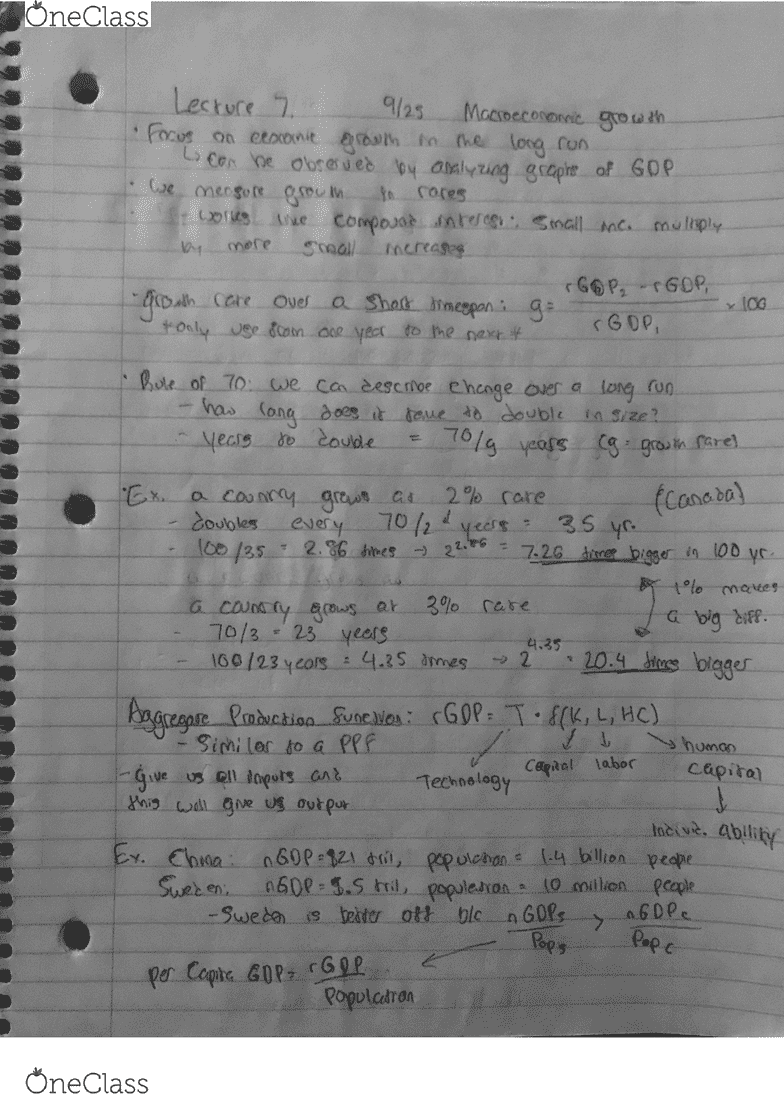 OneClass
Lecture 7. 9/25 Macroeconomic growth
· Focus on economic growth in the long run
↳ can be observed by analyzing graphs of GDP
· We measure growth in rates
· works like compound interest: small inc. multiply
by more small increases
· growth rate over a short timespan: g = (rGDP₂ - rGDP₁) / rGDP₁ × 100
* only use from one year to the next *
· Rule of 70: we can describe change over a long run
- how long does it take to double in size?
- years to double = 70/g years (g = growth rate)
· Ex. a country grows at 2% rate (Canada)
- doubles every 70/2 years = 35 yr.
- 100/35 = 2.86 times → 2^2.86 = 7.26 times bigger in 100 yr.
1% makes
a country grows at 3% rate a big diff.
- 70/3 = 23 years
- 100/23 years = 4.35 times → 2^4.35 = 20.4 times bigger
Aggregate Production Function: rGDP = T · f(K, L, HC)
- Similar to a PPF
Technology Capital labor human capital
- Give us all inputs and
this will give us output
Indivi. ability
Ex. China: nGDP = $21 tril, population = 1.4 billion people
Sweden: nGDP = $.5 tril, population = 10 million people
- Sweden is better off b/c nGDPs/Pops > nGDPc/Popc
per Capita GDP = rGDP/Population
OneClass